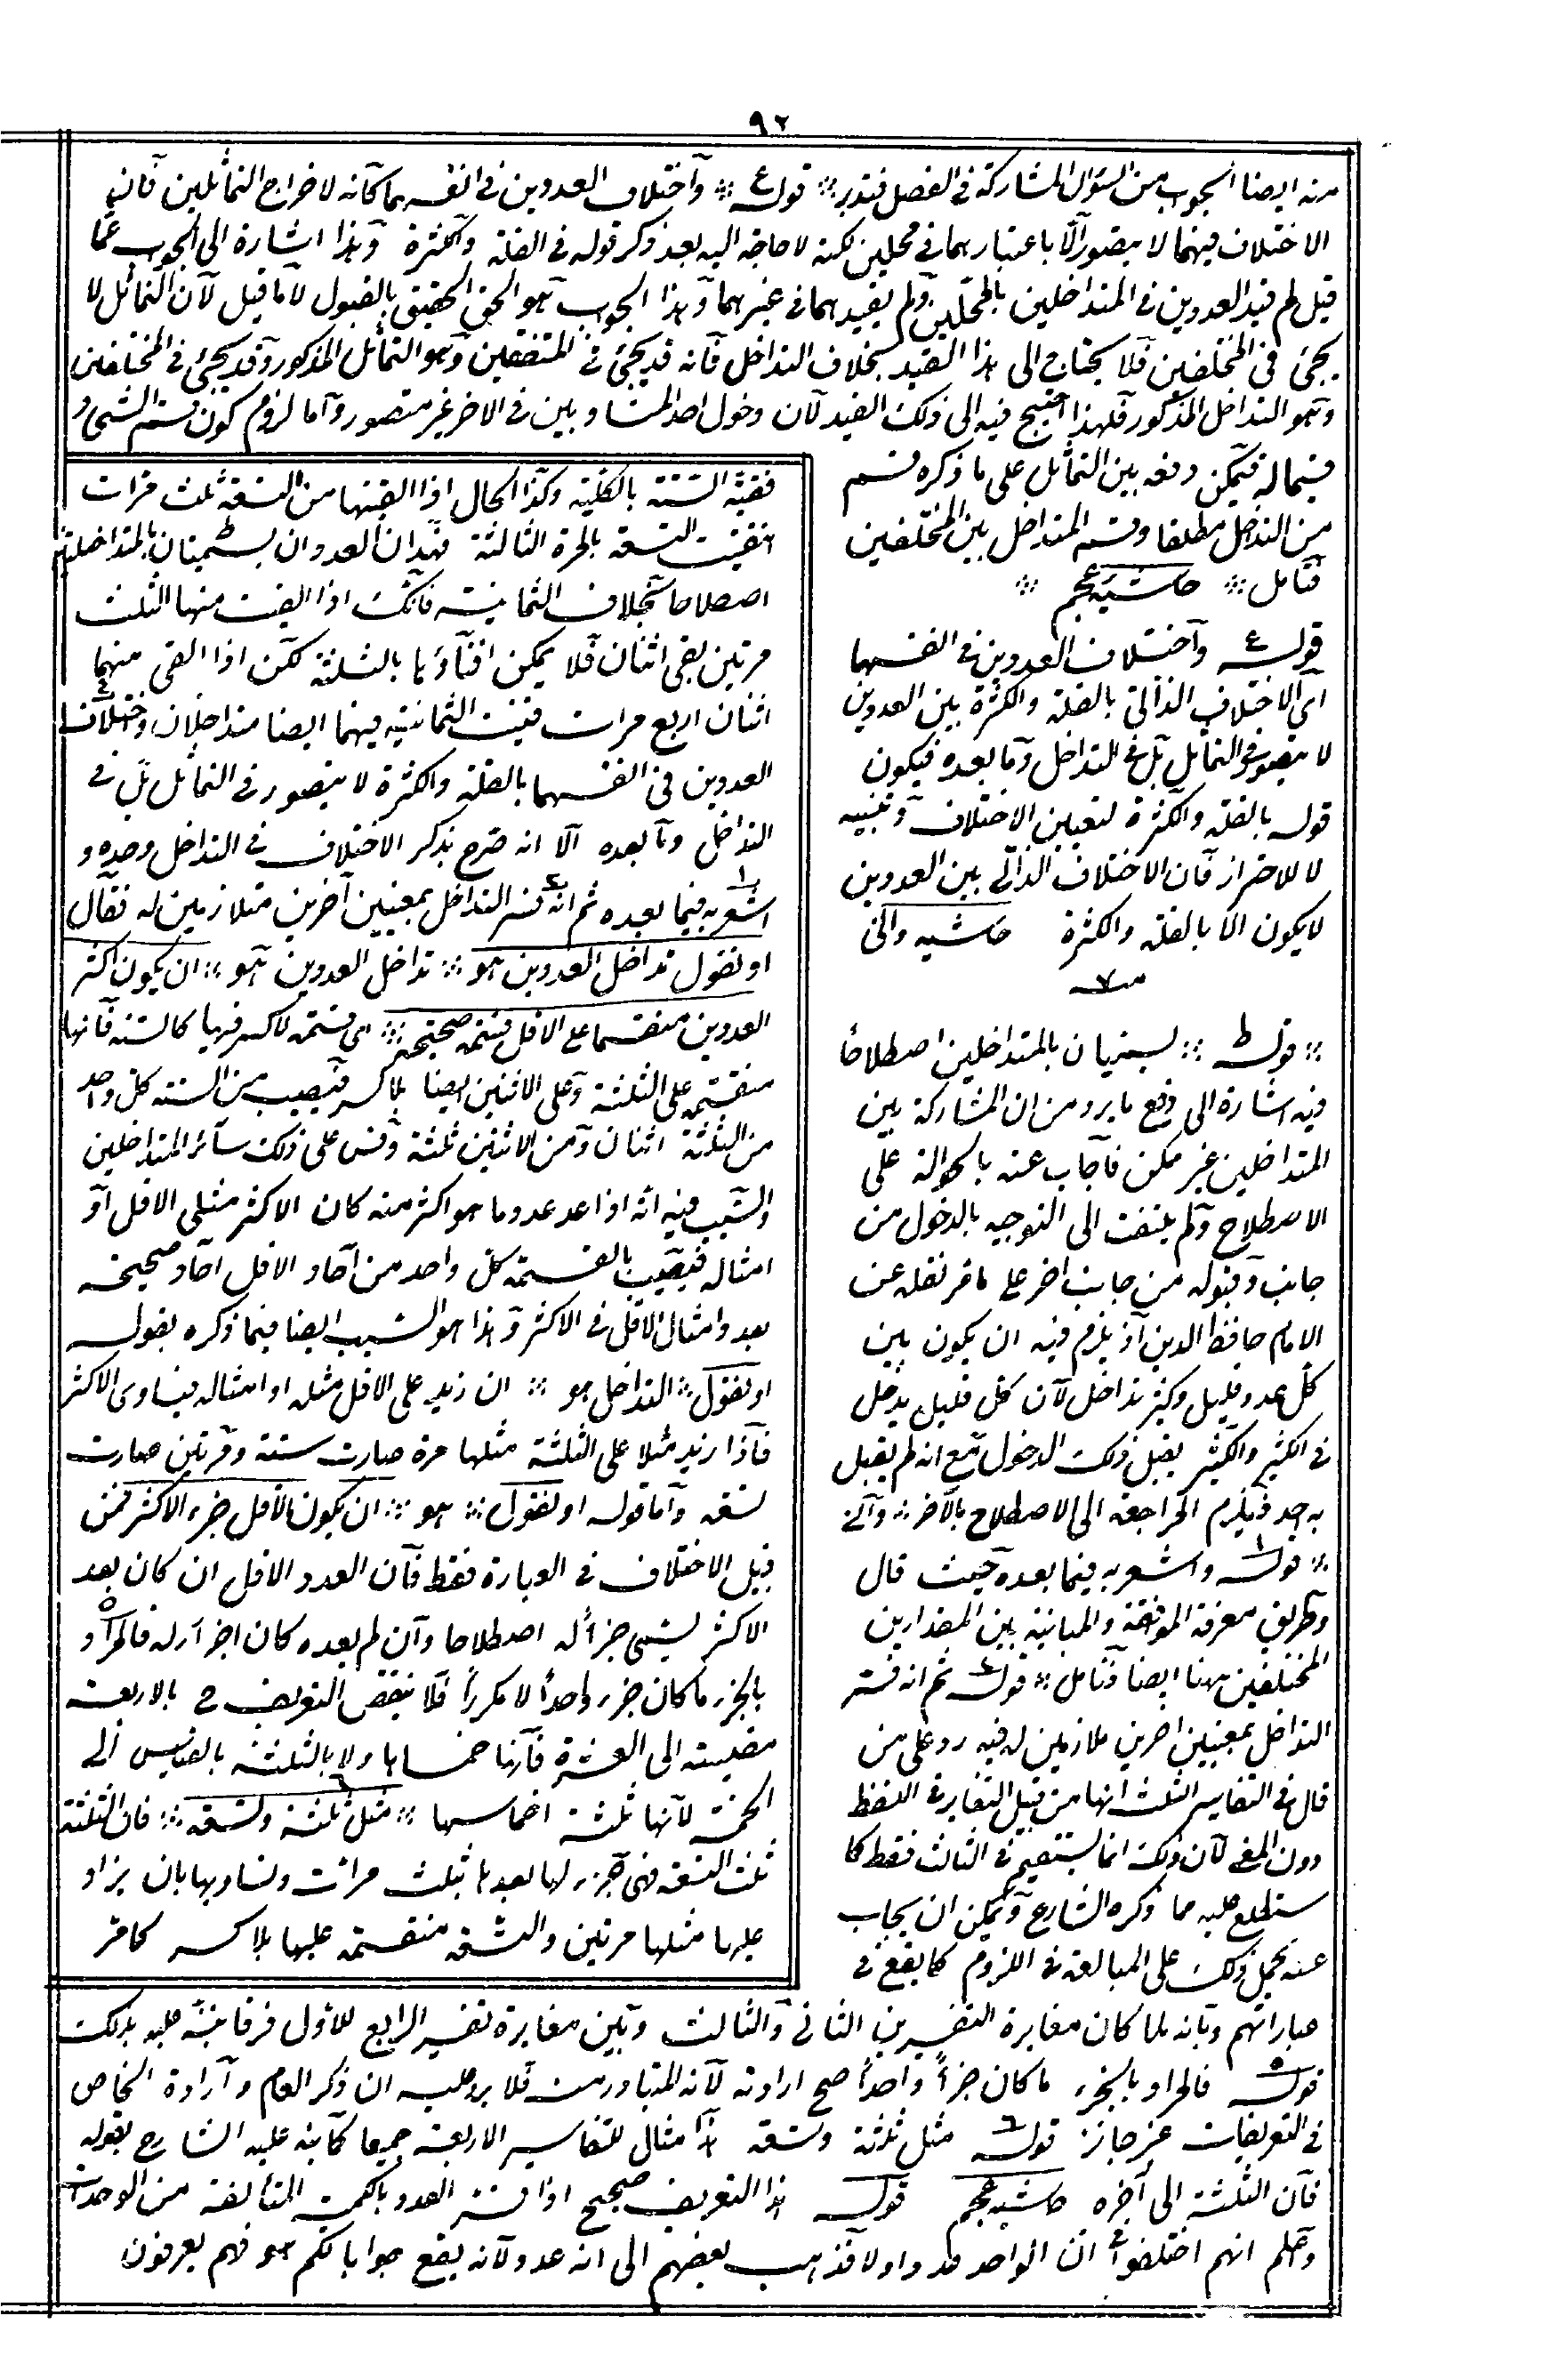 ٩٢
منه ايضا الجواب من السؤال المشاركة فى الفصل فتدبر قوله واختلاف العددين فى انفسهما كانه لاخراج التماثلين فان
الاختلاف فيهما لا يتصور الا باعتبارهما فى محلين لكنه لا حاجة اليه بعد ذكر قوله فى القلة والكثرة وهذا اشارة الى الجواب عما
قيل لم قيد العددين فى المتداخلين بالمختلفين ولم يقيدهما فى غيرهما وهذا الجواب هو الحق الحقيق بالقبول لا ما قيل لان التماثل لا
يجئ فى المختلفين فلا يحتاج الى هذا القيد بخلاف التداخل فانه قد يجئ فى المتفقين وهو التماثل المذكور وقد يجئ فى المختلفين
وهو التداخل المذكور فلهذا احتيج فيه الى ذلك القيد لان دخول احد المتساويين فى الاخر غير متصور واما لزوم كون قسم الشئ
قسيما له فيمكن دفعه بين التماثل على ما ذكره قسم
من التداخل مطلقا وقسيم التداخل بين المختلفين
فتأمل حاشية عجم
قوله واختلاف العددين فى انفسهما
اى الاختلاف الذاتى بالقلة والكثرة بين العددين
لا يتصور فى التماثل بل فى التداخل وما بعده فيكون
قوله بالقلة والكثرة لتعيين الاختلاف وتبيينه
لا للاحتراز فان الاختلاف الذاتى بين العددين
لا يكون الا بالقلة والكثرة حاشيه والى
قوله يسميان بالمتداخلين اصطلاحا
فيه اشارة الى دفع ما يرد من ان المشاركة بين
المتداخلين غير ممكن فاجاب عنه بالحوالة على
الاصطلاح ولم يلتفت الى التوجيه بالدخول من
جانب وقبوله من جانب اخر على ما مر نقله عن
الامام حافظ الدين اذ يلزم فيه ان يكون بين
كل عدد قليل وكثير تداخل لان كل قليل يدخل
فى الكثير والكثير يقبل ذلك الدخول مع انه لم يقبل
به احد فيلزم المراجعة الى الاصطلاح بالاخر
قوله واشعر به فيما بعده حيث قال
وطريق معرفة الموافقة والمباينة بين المقدارين
المختلفين ههنا ايضا فتأمل قوله ثم انه فسر
التداخل بمعنيين اخرين ملازمين له فيه رد على من
قال فى التفاسير الثلث انها من قبيل التغاير فى اللفظ
دون المعنى لان ذلك انما يستقيم فى الثالث فقط كما
ستطلع عليه مما ذكره الشارح ويمكن ان يجاب
عنه بحمل ذلك على المبالغة فى اللزوم كما يقع فى
فقية الستة بالكلية وكذا الحال اذا القيتها من التسعة ثلث مرات
انفنيت التسعة بالمرة الثالثة فهذان العددان يسميان بالمتداخلين
اصطلاحا بخلاف الثمانية فانك اذا القيت منها الثلث
مرتين بقى اثنان فلا يمكن افناؤها بالثلثة لكن اذا القى منهما
اثنان اربع مرات فنيت الثمانية فيهما ايضا متداخلان واختلاف
العددين فى انفسهما بالقلة والكثرة لا يتصور فى التماثل بل فى
التداخل وما بعده الا انه صرح بذكر الاختلاف فى التداخل وحده و
اشعر به فيما بعده ثم انه فسر التداخل بمعنيين آخرين متلازمين له فقال
او نقول تداخل العددين هو تداخل العددين هو ان يكون اكثر
العددين منقسما على الاقل قسمة صحيحة اى قسمة لا كسر فيها كالستة فانها
منقسمة على الثلثة وعلى الاثنين ايضا بلا كسر فيصيب من الستة كل واحد
من الثلثة اثنان ومن الاثنين ثلثة وقس على ذلك سائر المتداخلين
والسبب فيه انه اذا عد عدد ما هو اكثر منه كان الاكثر مثلى الاقل او
امثاله فيصيب بالقسمة كل واحد من آحاد الاقل آحاد صحيحة
بعدد امثال الاقل فى الاكثر وهذا هو السبب ايضا فيما ذكره بقوله
او نقول التداخل هو ان زيد على الاقل مثله او امثاله فيساوى الاكثر
فاذا زيد مثلا على الثلثة مثلها مرة صارت ستة ومرتين صارت
تسعة واما قوله او نقول هو ان يكون الاقل جزء الاكثر فمن
قبيل الاختلاف فى العبارة فقط فان العدد الاقل ان كان يعد
الاكثر يسمى جزأ له اصطلاحا وان لم يعده كان اجزاء له فالمراد
بالجزء ما كان جزء واحدا لا مكررا فلا ينتقض التعريف ح بالاربعة
مقيسة الى العشرة فانها خمساها ولا بالثلثة بالقياس الى
الخمسة لانها ثلثة اخماسها مثل ثلثة وتسعة فان الثلثة
ثلث التسعة فهى جزء لها يعدها ثلث مرات وتساويها بان يزاد
عليها مثلها مرتين والتسعة منقسمة عليها بلا كسر كما مر
عباراتهم وبانه لما كان مغايرة التفسيرين الثانى والثالث وبين مغايرة تفسير الرابع للاول فرقا نبه عليه بذلك
قوله فالمراد بالجزء ما كان جزأ واحدا صح ارادته لانه المتبادر منه فلا يرد عليه ان ذكر العام وارادة الخاص
فى التعريفات غير جائز قوله مثل ثلثة وتسعة هذا مثال للتفاسير الاربعة جميعا كما نبه عليه الشارح بقوله
فان الثلثة الى آخره حاشيه عجم قوله هذا التعريف صحيح اذا فسر العدد بالكمية المتألفة من الوحدات
واعلم انهم اختلفوا ان الواحد عدد او لا فذهب بعضهم الى انه عدد لانه يقع جوابا لكم هو فهم يعرفون